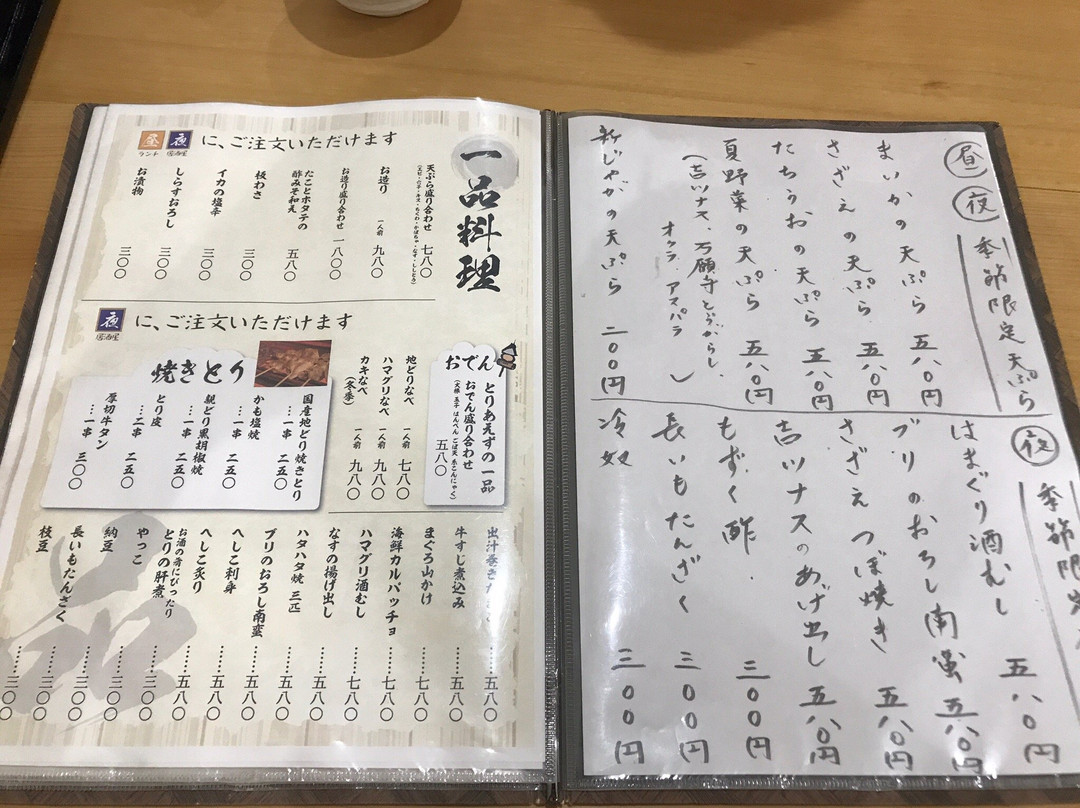 一品料理
昼 夜 に、ご注文いただけます
ランチ 居酒屋
天ぷら盛り合わせ 七八〇
お造り 一人前 九八〇
お造り盛り合わせ 一八〇〇
たことホタテの酢みそ和え 五八〇
板わさ 三〇〇
イカの塩辛 三〇〇
しらすおろし 三〇〇
お漬物 三〇〇
夜 に、ご注文いただけます
居酒屋
おでん
とりあえずの一品
おでん盛り合わせ
(大根 玉子 はんぺん ごぼ天 糸こんにゃく)
五八〇
地どりなべ 一人前 七八〇
ハマグリなべ 一人前 九八〇
カキなべ(冬季) 一人前 九八〇
焼きとり
国産地どり焼きとり …一串 二五〇
かも塩焼 …一串 二五〇
親どり黒胡椒焼 …一串 二五〇
とり皮 …二串 二五〇
厚切牛タン …一串 三〇〇
出汁巻き ……五八〇
牛すじ煮込み ……五八〇
まぐろ山かけ ……七八〇
海鮮カルパッチョ ……七八〇
ハマグリ酒むし ……七八〇
なすの揚げ出し ……五八〇
ハタハタ焼 三匹 ……五八〇
ブリのおろし南蛮 ……五八〇
へしこ刺身 ……五八〇
へしこ炙り ……五八〇
お酒の肴にぴったり
とりの肝煮 ……五八〇
やっこ ……三〇〇
納豆 ……三〇〇
長いもたんざく ……三〇〇
枝豆 ……三〇〇
昼 夜 季節限定天ぷら
まいかの天ぷら 五八〇円
さざえの天ぷら 五八〇円
たちうおの天ぷら 五八〇円
夏野菜の天ぷら 五八〇円
(吉川ナス、万願寺とうがらし、
オクラ、アスパラ)
新じゃがの天ぷら 二〇〇円
夜 季節限定
はまぐり酒むし 五八〇円
ブリのおろし南蛮 五八〇円
さざえ つぼ焼き 五八〇円
吉川ナスのあげ出し 五八〇円
もずく酢 三〇〇円
長いもたんざく 三〇〇円
冷奴 三〇〇円